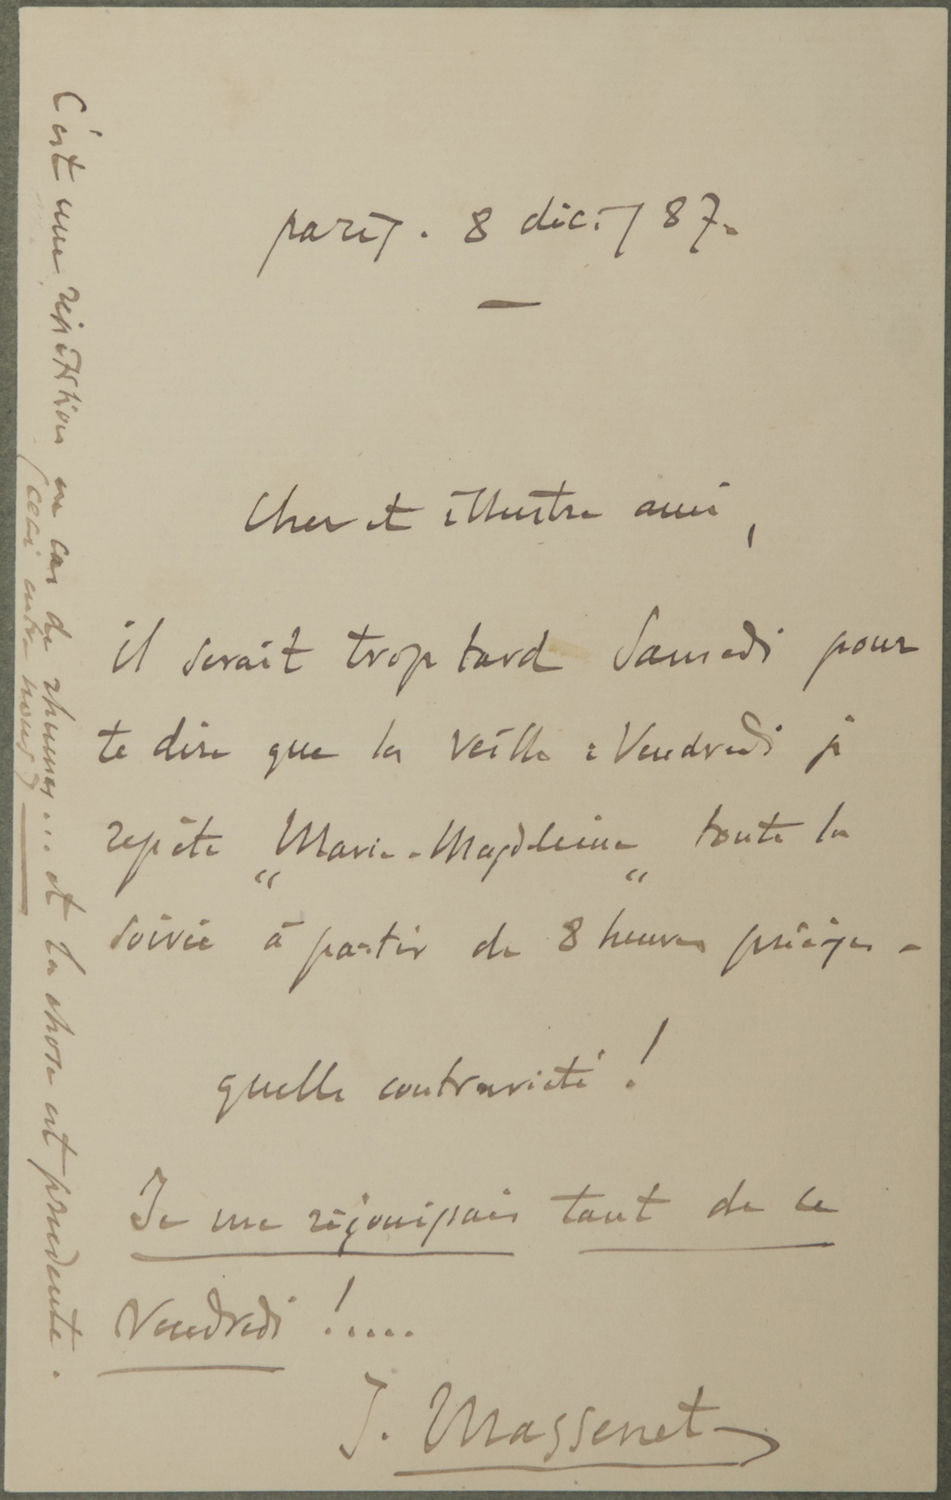 paris. 8 déc. / 87.
Cher et illustre ami,
il serait trop tard Samedi pour
te dire que la veille : Vendredi je
répète "Marie-Magdeleine" toute la
soirée à partir de 8 heures précises -
quelle contrariété !
Je me réjouissais tant de ce
Vendredi !.....
J. Massenet
C'est une répétition en cas de rhumes... et la chose est prudente.
(ceci entre nous)